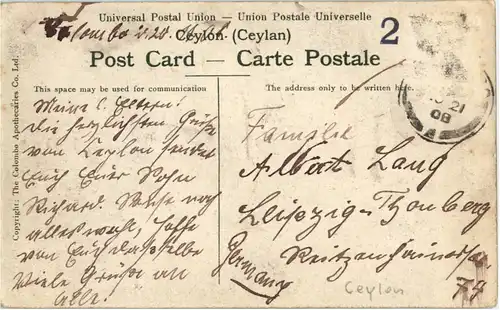 Universal Postal Union — Union Postale Universelle
Colombo
Ceylon (Ceylan)
2
Post Card — Carte Postale
This space may be used for communication
The address only to be written here.
Copyright: The Colombo Apothecaries Co. Ltd.
21
08
Meine l. Eltern!
Die herzlichsten Grüße
von Ceylon sendet
Euch Euer Sohn
Richard. noch
alles wohl, hoffe
von Euch dasselbe
Viele Grüße an
Alle!
Familie
Albert Lang
Leipzig-Thonberg
Reitzenhainerstr
79
Germany
Ceylon